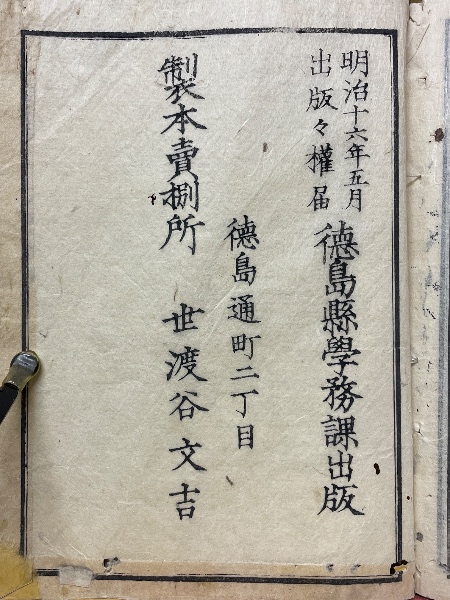 明治十六年五月
出版々權届
德島縣學務課出版
德島通町二丁目
製本賣捌所 世渡谷文吉